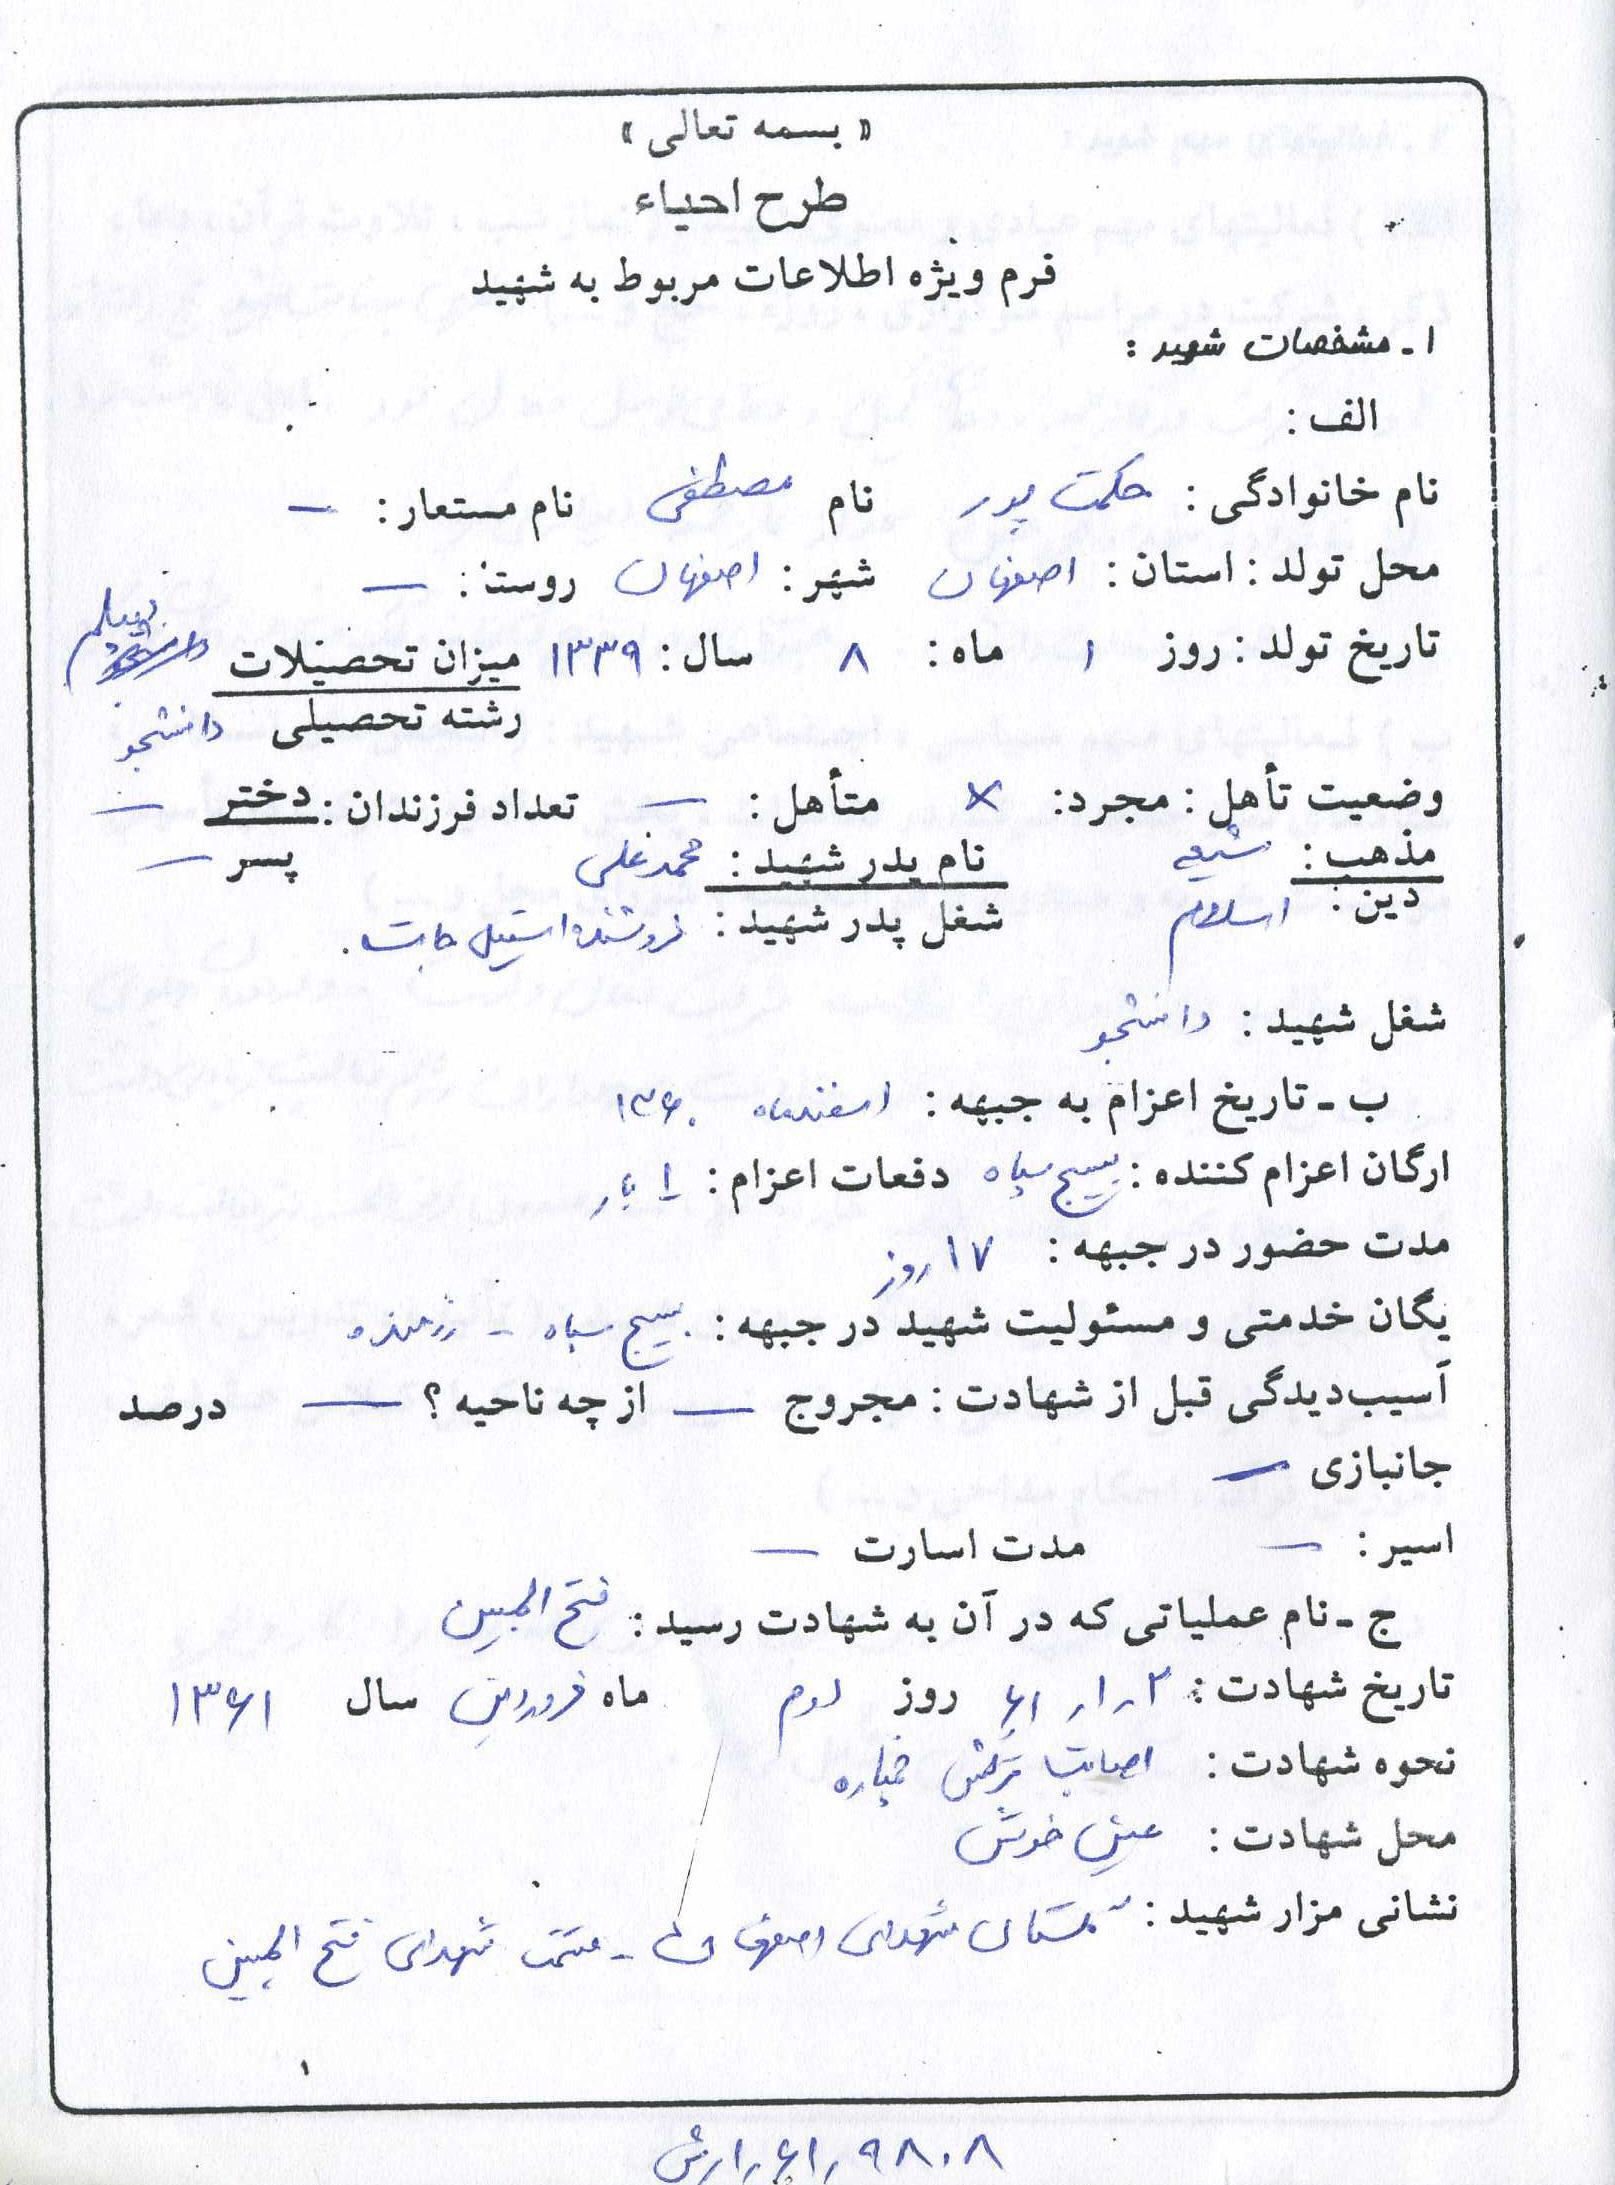 « بسمه تعالی »
طرح احیاء
فرم ویژه اطلاعات مربوط به شهید
۱ ـ مشخصات شهید :
الف :
نام خانوادگی : حکمت پور نام مصطفی نام مستعار : —
محل تولد : استان : اصفهان شهر : اصفهان روستا : —
تاریخ تولد : روز ۱ ماه : ۸ سال : ۱۳۳۹ میزان تحصیلات دیپلم
رشته تحصیلی دانشجو
وضعیت تأهل : مجرد : × متأهل : — تعداد فرزندان : دختر —
مذهب : شیعه نام پدر شهید : محمدعلی پسر —
دین : اسلام شغل پدر شهید : فروشنده استیل جات .
شغل شهید : دانشجو
ب ـ تاریخ اعزام به جبهه : اسفندماه ۱۳۶۰
ارگان اعزام کننده : بسیج سپاه دفعات اعزام : ۱ بار
مدت حضور در جبهه : ۱۷ روز
یگان خدمتی و مسئولیت شهید در جبهه : بسیج سپاه - رزمنده
آسیب‌دیدگی قبل از شهادت : مجروح — از چه ناحیه ؟ — درصد
جانبازی —
اسیر : — مدت اسارت —
ج ـ نام عملیاتی که در آن به شهادت رسید : فتح المبین
تاریخ شهادت : ۲ ر ۱ ر ۶۱ روز دوم ماه فروردین سال ۱۳۶۱
نحوه شهادت : اصابت ترکش خمپاره
محل شهادت : عین خوش
نشانی مزار شهید : گلستان شهدای اصفهان - قسمت شهدای فتح المبین
۱
۹۸۰۸ ر ۶۱ ر ۱ ر ش